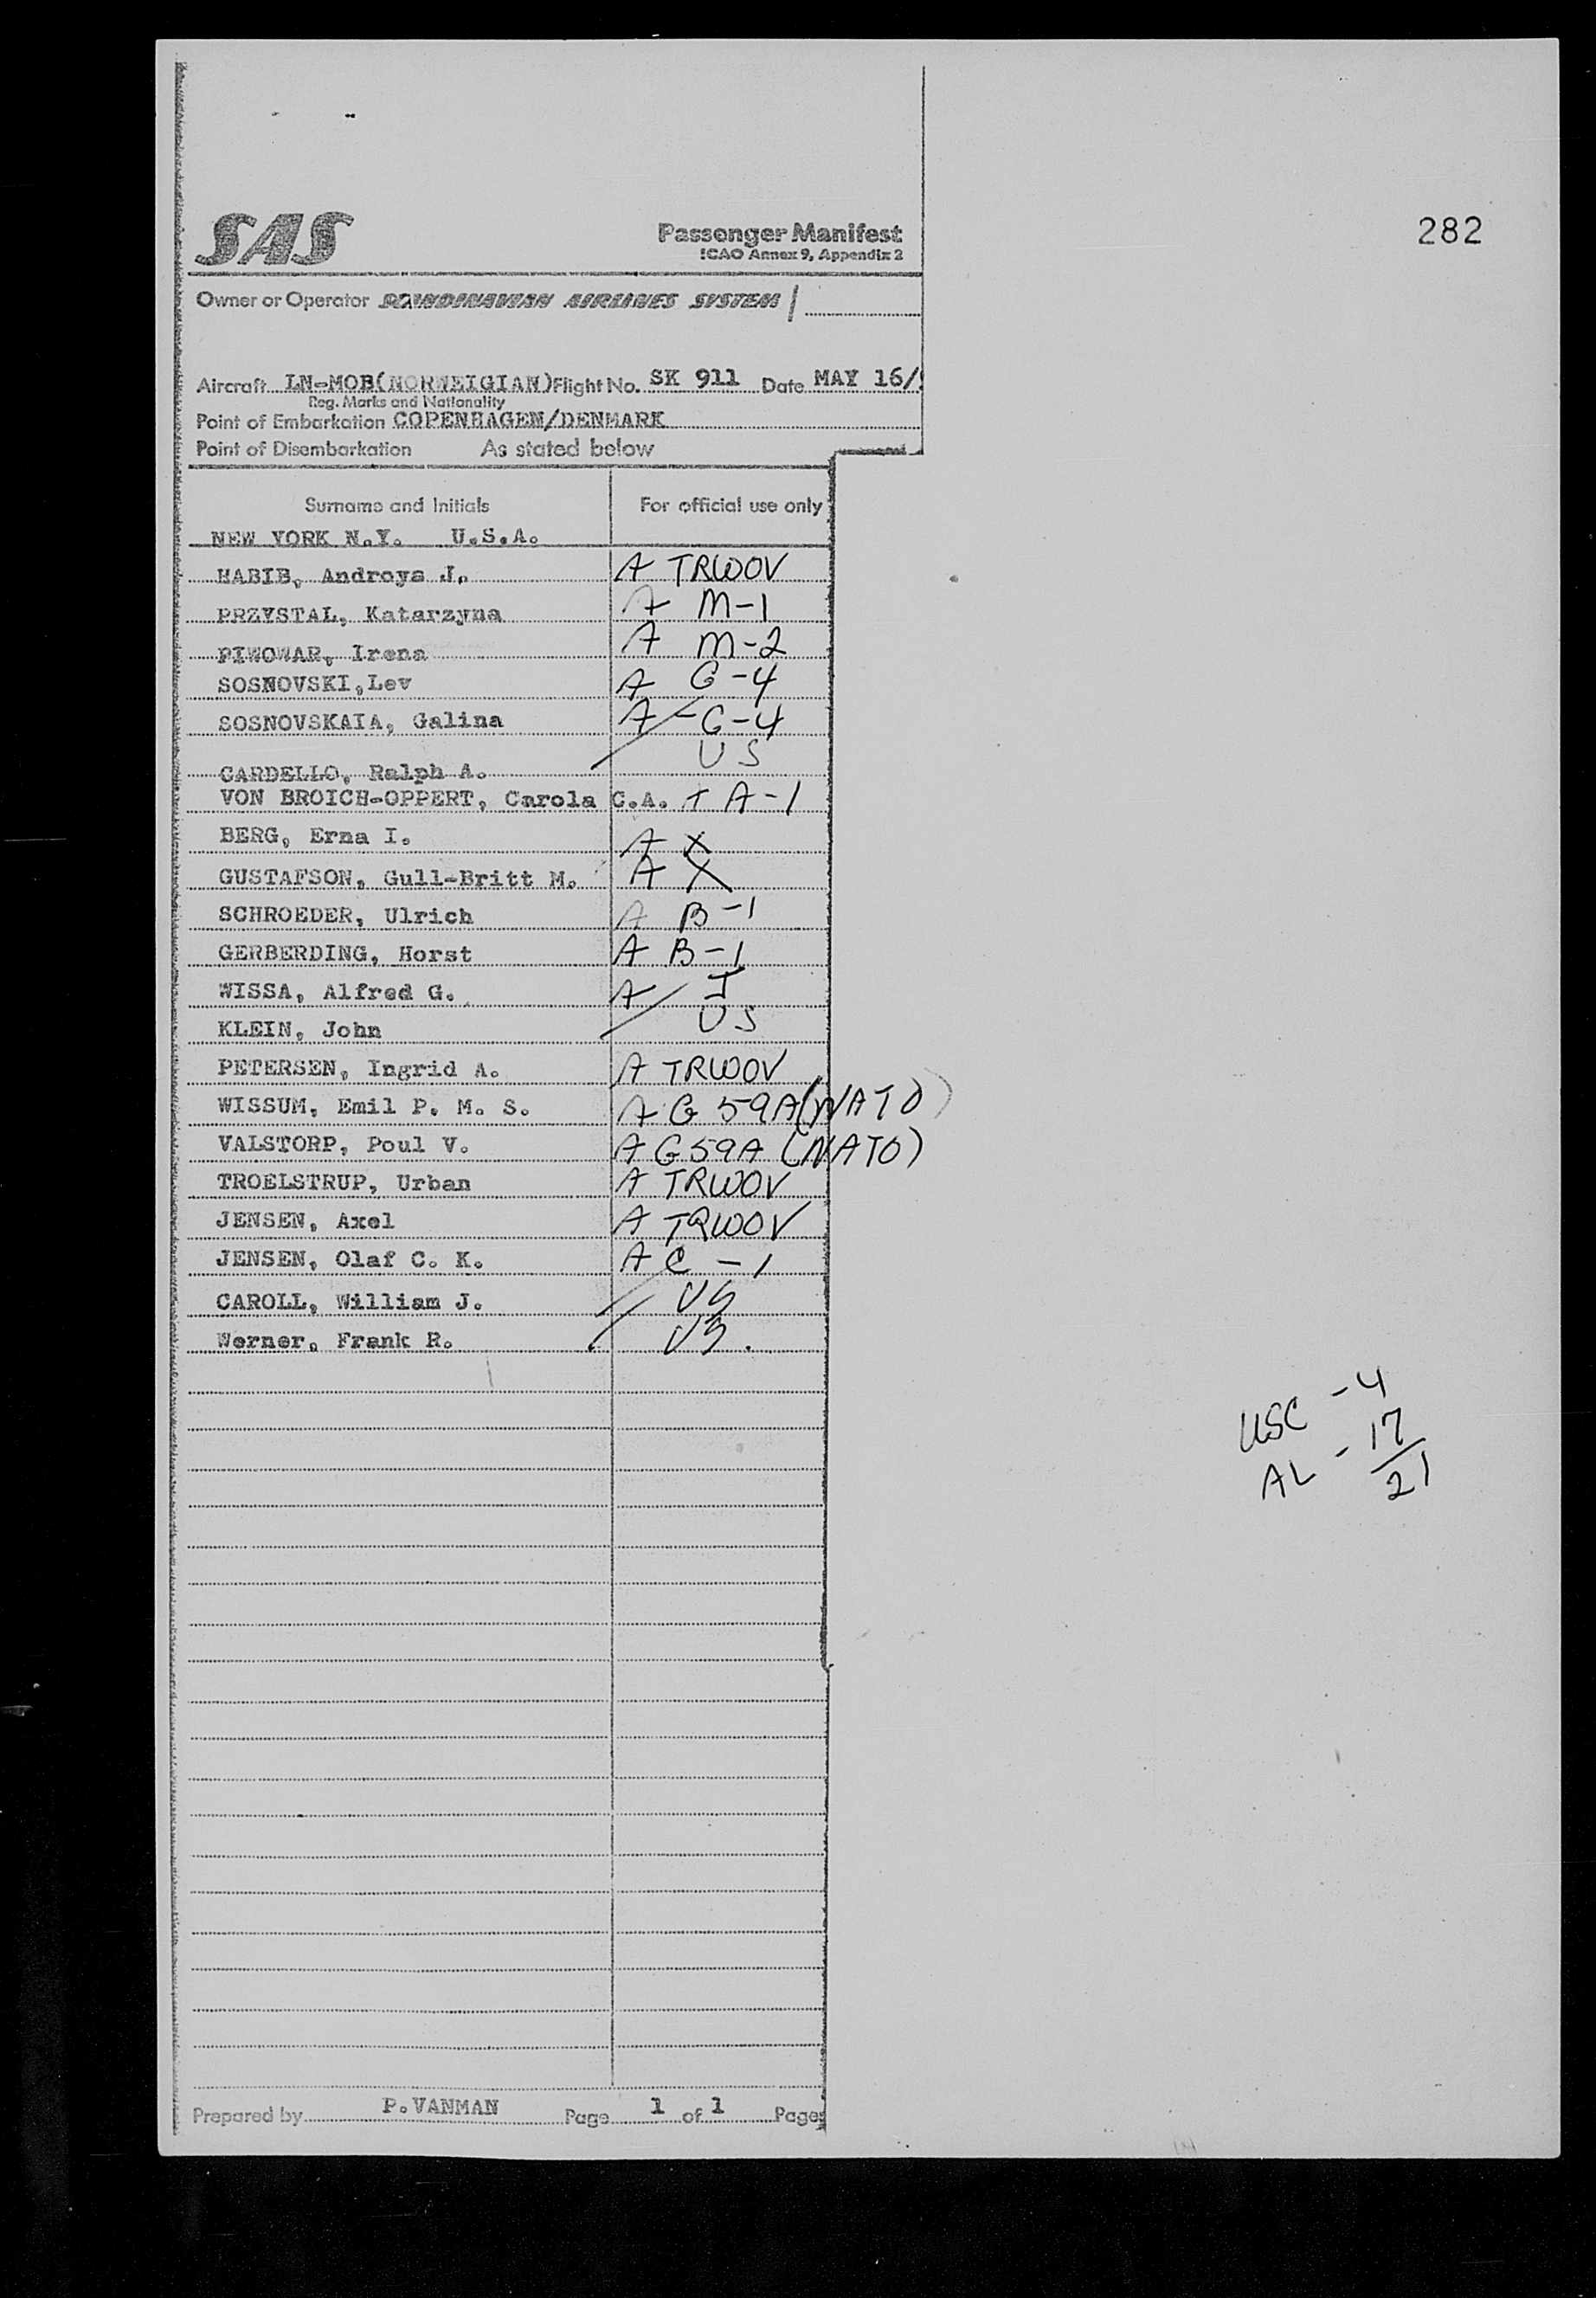 282
SAS
Passenger Manifest
ICAO Annex 9, Appendix 2
Owner or Operator SCANDINAVIAN AIRLINES SYSTEM /
Aircraft LN-MOB(NORWEIGIAN) Flight No. SK 911 Date MAY 16/
Reg. Marks and Nationality
Point of Embarkation COPENHAGEN/DENMARK
Point of Disembarkation As stated below
Surname and Initials For official use only
NEW YORK N.Y. U.S.A.
HABIB, Androys J. A TRWOV
PRZYSTAL, Katarzyna A M-1
PIWOWAR, Irena A M-2
SOSNOVSKI,Lev A G-4
SOSNOVSKAIA, Galina A - G-4
CARDELLO, Ralph A. US
VON BROICH-OPPERT, Carola C.A. + A-1
BERG, Erna I. A X
GUSTAFSON, Gull-Britt M. A X
SCHROEDER, Ulrich A B-1
GERBERDING, Horst A B-1
WISSA, Alfred G. A I
KLEIN, John US
PETERSEN, Ingrid A. A TRWOV
WISSUM, Emil P. M. S. A G 59A(NATO)
VALSTORP, Poul V. A G59A (NATO)
TROELSTRUP, Urban A TRWOV
JENSEN, Axel A TRWOV
JENSEN, Olaf C. K. A C-1
CAROLL, William J. US
Werner, Frank R. US.
USC - 4
AL - 17
21
Prepared by P.VANMAN Page 1 of 1 Pages